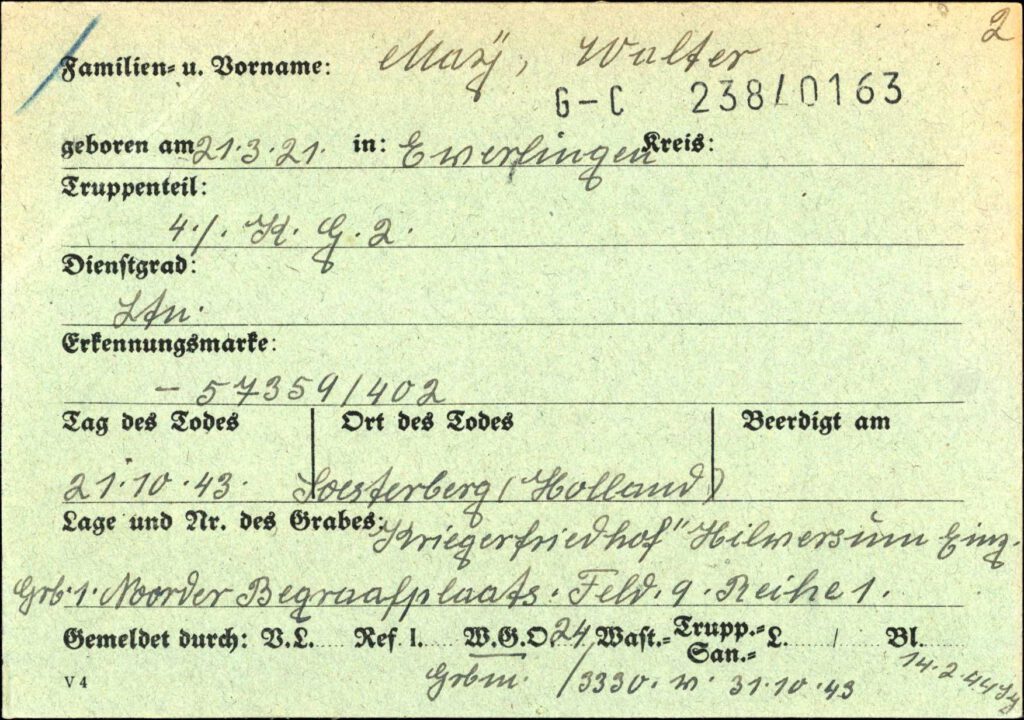 2
Familien- u. Vorname: Mayÿ, Walter
G-C 238/0163
geboren am 21.3.21. in: Ewerlingen Kreis:
Truppenteil:
4./. K. G. 2.
Dienstgrad:
Ltn.
Erkennungsmarke:
- 57359/402
Tag des Todes Ort des Todes Beerdigt am
21.10.43. Soesterberg (Holland)
Lage und Nr. des Grabes: "Kriegerfriedhof" Hilversum Einz.
Grb. 1. Noorder Begraafplaats. Feld. 9. Reihe 1.
Gemeldet durch: V.L. Ref. I. W.G.O. 24 Wast.- Trupp.- San.- L. / Bl.
Grbm. /3330. v. 31.10.43 14.2.44
V 4